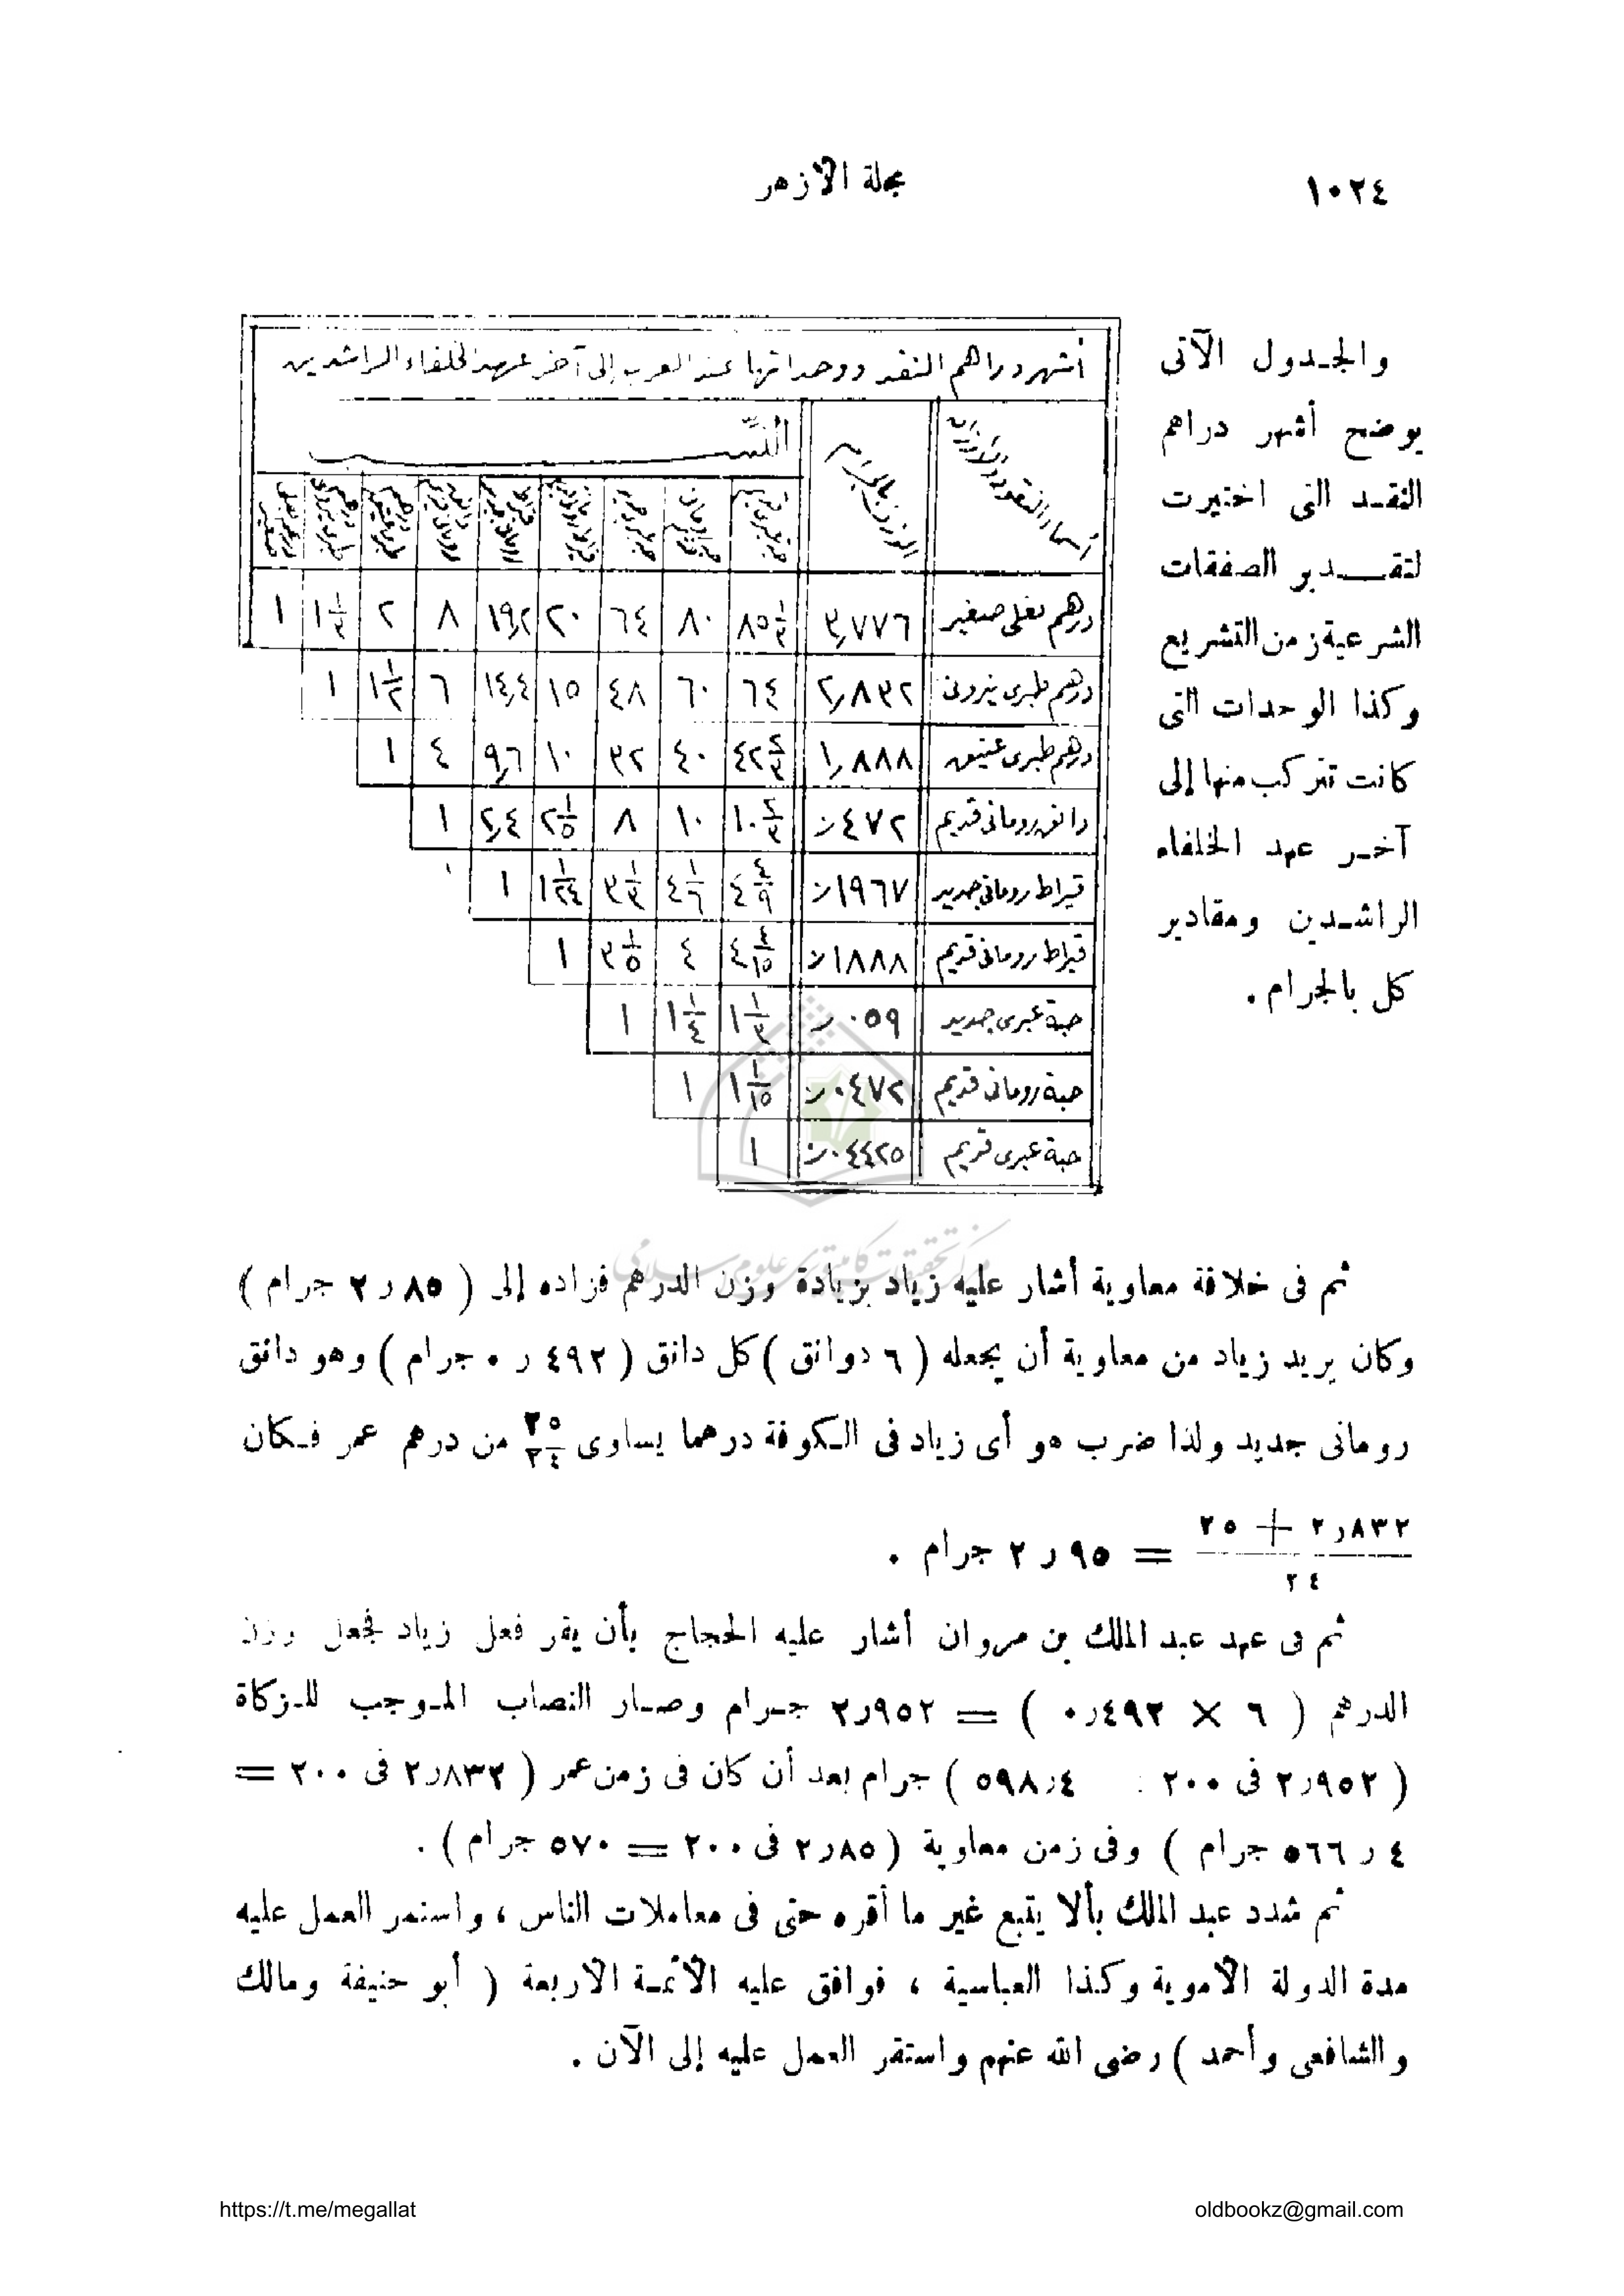 ١٠٢٤
مجلة الأزهر
والجدول الآتى
يوضح أشهر دراهم
النقد التى اختيرت
لتقدير الصفقات
الشرعية زمن التشريع
وكذا الوحدات التى
كانت تتركب منها إلى
آخر عهد الخلفاء
الراشدين ومقادير
كل بالجرام .
أشهر دراهم النقد ووحداتها عند العرب إلى آخر عهد الخلفاء الراشدين
أسماء النقود والأوزان | الوزن بالجرام | النسب
درهم بغلى صغير | ٣٫٧٧٦ | ٨٥ ١/٣ | ٨٠ | ٦٤ | ٢٠ | ١٩٫٢ | ٨ | ٢ | ١ ١/٣ | ١
درهم طبرى | ٢٫٨٣٢ | ٦٤ | ٦٠ | ٤٨ | ١٥ | ١٤٫٤ | ٦ | ١ ١/٢ | ١
درهم طبرى عتيق | ١٫٨٨٨ | ٤٢ ٢/٣ | ٤٠ | ٣٢ | ١٠ | ٩٫٦ | ٤ | ١
دانق رومانى قديم | ٤٧٢ر | ١٠ ٢/٣ | ١٠ | ٨ | ٢ ١/٥ | ٢٫٤ | ١
قيراط رومانى جديد | ١٩٦٧ر | ٤ ٤/٩ | ٤ ١/٦ | ٣ ١/٣ | ١ ١/٢٤ | ١
قيراط رومانى قديم | ١٨٨٨ر | ٤ ٤/١٥ | ٤ | ٣ ١/٥ | ١
حبة عبرى جديد | ٠٥٩ر | ١ ١/٣ | ١ ١/٤ | ١
حبة رومانى قديم | ٠٤٧٢ر | ١ ١/١٥ | ١
حبة عبرى قديم | ٠٤٤٢٥ر | ١
ثم فى خلافة معاوية أشار عليه زياد بزيادة وزن الدرهم فزاده إلى ( ٨٥ ر ٢ جرام )
وكان يريد زياد من معاوية أن يجعله ( ٦ دوانق ) كل دانق ( ٤٩٢ ر ٠ جرام ) وهو دانق
رومانى جديد ولذا ضرب هو أى زياد فى الكوفة درهما يساوى ٢٥/٢٤ من درهم عمر فكان
٢ر٨٣٢ + ٢٥ / ٢٤ = ٩٥ ر ٢ جرام .
ثم فى عهد عبد الملك بن مروان أشار عليه الحجاج بأن يقر فعل زياد فجعل وزن
الدرهم ( ٦ × ٠ر٤٩٢ ) = ٢ر٩٥٢ جرام وصار النصاب الموجب للزكاة
( ٢ر٩٥٢ فى ٢٠٠ : ٥٩٨ر٤ ) جرام بعد أن كان فى زمن عمر ( ٢ر٨٣٢ فى ٢٠٠ =
٤ ر ٥٦٦ جرام ) وفى زمن معاوية ( ٢ر٨٥ فى ٢٠٠ = ٥٧٠ جرام ) .
ثم شدد عبد الملك بألا يتبع غير ما أقره حتى فى معاملات الناس ، واستمر العمل عليه
مدة الدولة الأموية وكذا العباسية ، فوافق عليه الأئمة الاربعة ( أبو حنيفة ومالك
والشافعى وأحمد ) رضى الله عنهم واستقر العمل عليه إلى الآن .
مركز تحقيقات كامپيوترى علوم اسلامى
https://t.me/megallat
oldbookz@gmail.com